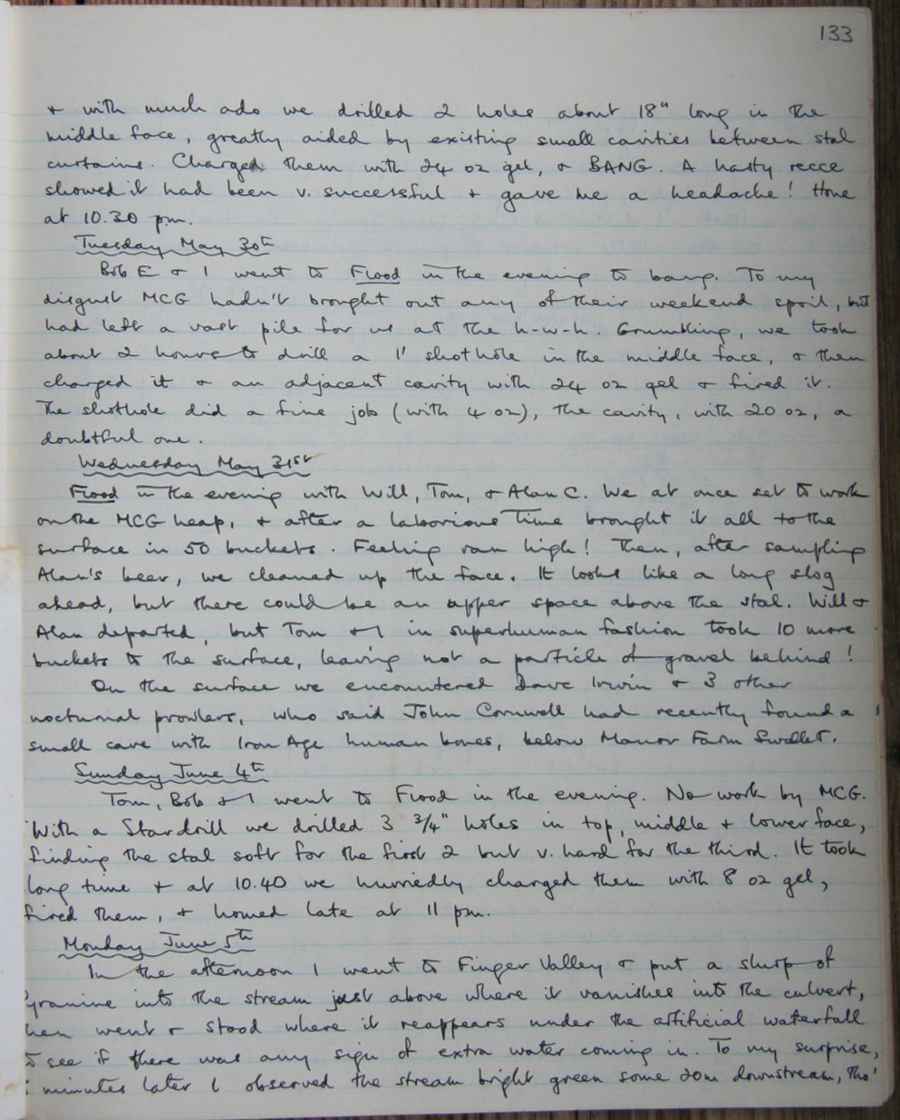 133
+ with much ado we drilled 2 holes about 18" long in the
middle face, greatly aided by existing small cavities between stal
curtains. Charged them with 24 oz gel, & BANG. A hasty recce
showed it had been v. successful + gave me a headache! Home
at 10.30 pm.
Tuesday May 30th
Bob E & I went to Flood in the evening to bang. To my
disgust MCG hadn't brought out any of their weekend spoil, but
had left a vast pile for us at the h-w-h. Grumbling, we took
about 2 hours to drill a 1' shothole in the middle face, & then
charged it & an adjacent cavity with 24 oz gel & fired it.
The shothole did a fine job (with 4 oz), the cavity, with 20 oz, a
doubtful one.
Wednesday May 31st
Flood in the evening with Will, Tom, & Alan C. We at once set to work
on the MCG heap, & after a laborious time brought it all to the
surface in 50 buckets. Feeling ran high! Then, after sampling
Alan's beer, we cleaned up the face. It looks like a long slog
ahead, but there could be an upper space above the stal. Will &
Alan departed, but Tom & I in superhuman fashion took 10 more
buckets to the surface, leaving not a particle of gravel behind!
On the surface we encountered Dave Irwin & 3 other
nocturnal prowlers, who said John Cornwell had recently found a
small cave with Iron Age human bones, below Manor Farm Swallet.
Sunday June 4th
Tom, Bob & I went to Flood in the evening. No work by MCG.
With a Stardrill we drilled 3 3/4" holes in top, middle + lower face,
finding the stal soft for the first 2 but v. hard for the third. It took
long time + at 10.40 we hurriedly charged them with 8 oz gel,
fired them, + homed late at 11 pm.
Monday June 5th
In the afternoon I went to Finger Valley & put a slurp of
yranine into the stream just above where it vanishes into the culvert,
hen went & stood where it reappears under the artificial waterfall
to see if there was any sign of extra water coming in. To my surprise,
minutes later I observed the stream bright green some 20m downstream, tho'